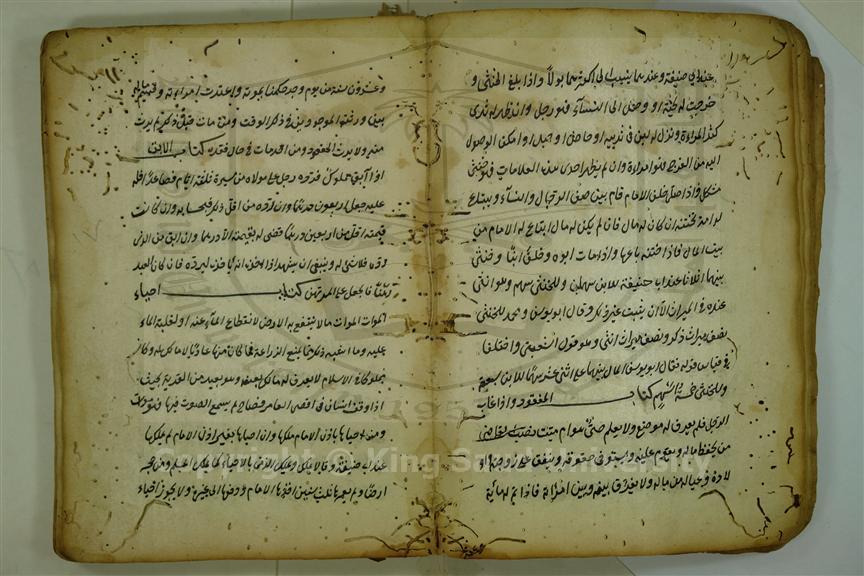 عند ابي حنيفة وعندهما ينسب الى اكثرهما بولا واذا بلغ الخنثى و
خرجت له لحية او وصل الى النساء فهو رجل وان ظهر له ثدي
كثدي المراة ونزل له لبن في ثدييه او حاض او حبل او امكن الوصول
اليه من الفرج فهو امراة وان لم يظهر احدى هذه العلامات فهو خنثى
مشكل فاذا صلى خلف الامام قام بين صف الرجال والنساء ويبتاع
له امة تختنه ان كان له مال فان لم يكن له مال ابتاع له الامام من
بيت المال فاذا ختنته باعها واذا مات ابوه وخلف ابنا وخنثى
بينهما اثلاثا عند ابي حنيفة للابن سهمين وللخنثى سهم وهو انثى
عنده في الميراث الا ان يثبت غير ذلك وقال ابو يوسف ومحمد للخنثى
نصف ميراث ذكر ونصف ميراث انثى وهو قول الشعبي واختلفا
في قياس قوله فقال ابو يوسف المال بينهما على اثنى عشر سهما للابن سبعة
وللخنثى خمسة كتاب المفقود واذا غاب
الرجل فلم يعرف له موضع ولا يعلم حي هو ام ميت نصب القاضي
من يحفظ ماله ويقوم عليه ويستوفي حقوقه وينفق على زوجته واو
لاده من ماله ولا يفرق بينه وبين امراته فاذا تم له مائة
وعشرون سنة من يوم ولد حكمنا بموته واعتدت امراته وقسم ماله
بين ورثته الموجودين في ذلك الوقت ومن مات قبل ذلك لم يرث
منه ولا يرث المفقود من احد مات في حال فقده كتاب الابق
اذا ابق مملوك فرده رجل على مولاه من مسيرة ثلثة ايام فصاعدا فله
عليه جعل اربعون درهما وان رده من اقل ذلك فبحسابه وان كانت
قيمته اقل من اربعين درهما قضي له بقيمته الا درهما وان ابق من الذي
رده فلا شئ له وينبغي ان يشهد اذا اخذه انه ياخذه ليرده فان كان العبد
رهنا فالجعل على المرتهن كتاب احياء
الموات الموات ما لا ينتفع به من الارض لانقطاع الماء عنه او لغلبة الماء
عليه وما اشبه ذلك مما يمنع الزراعة فما كان منها عاديا لا مالك له او كان
مملوكا في الاسلام لا يعرف له مالك بعينه وهو بعيد من القرية بحيث
اذا وقف انسان في اقصى العامر فصاح لم يسمع الصوت فيه فهو موات
ومن احياها باذن الامام ملكها وان احياها بغير اذن الامام لم يملكها
عند ابي حنيفة وقالا يملكه ويملك الذمي بالاحياء كما يملك المسلم ومن حجر
ارضا ولم يعمرها ثلث سنين اخذها الامام ودفعها الى غيره ولا يجوز احياء
Copyright © King Saud University
1957